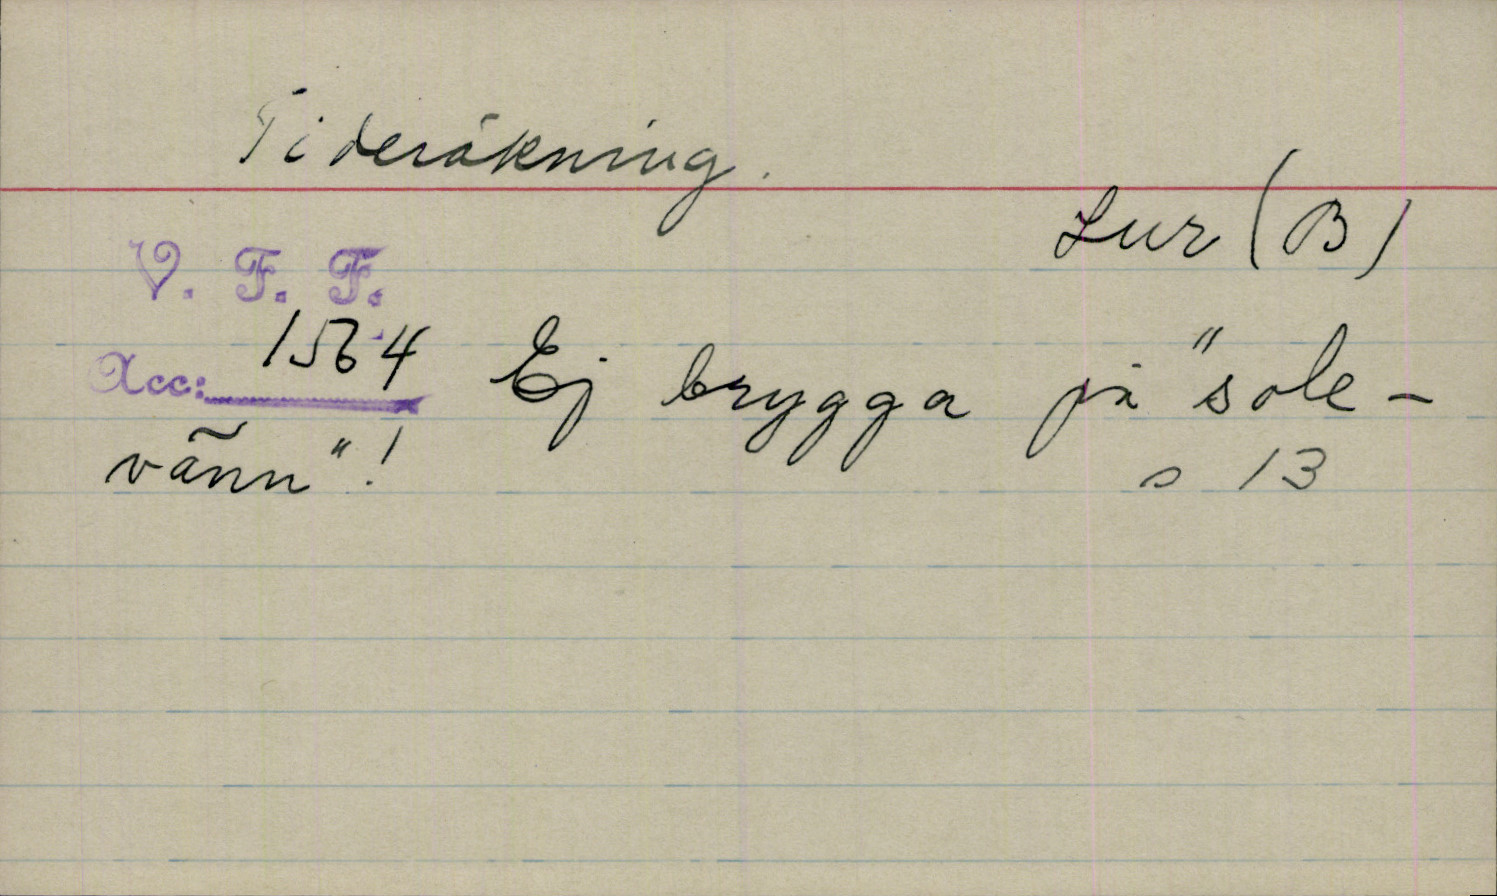 Tideräkning.
Lur (B)
V. F. F.
Acc: 1564 Ej brygga på "sole-
vänn"! s 13